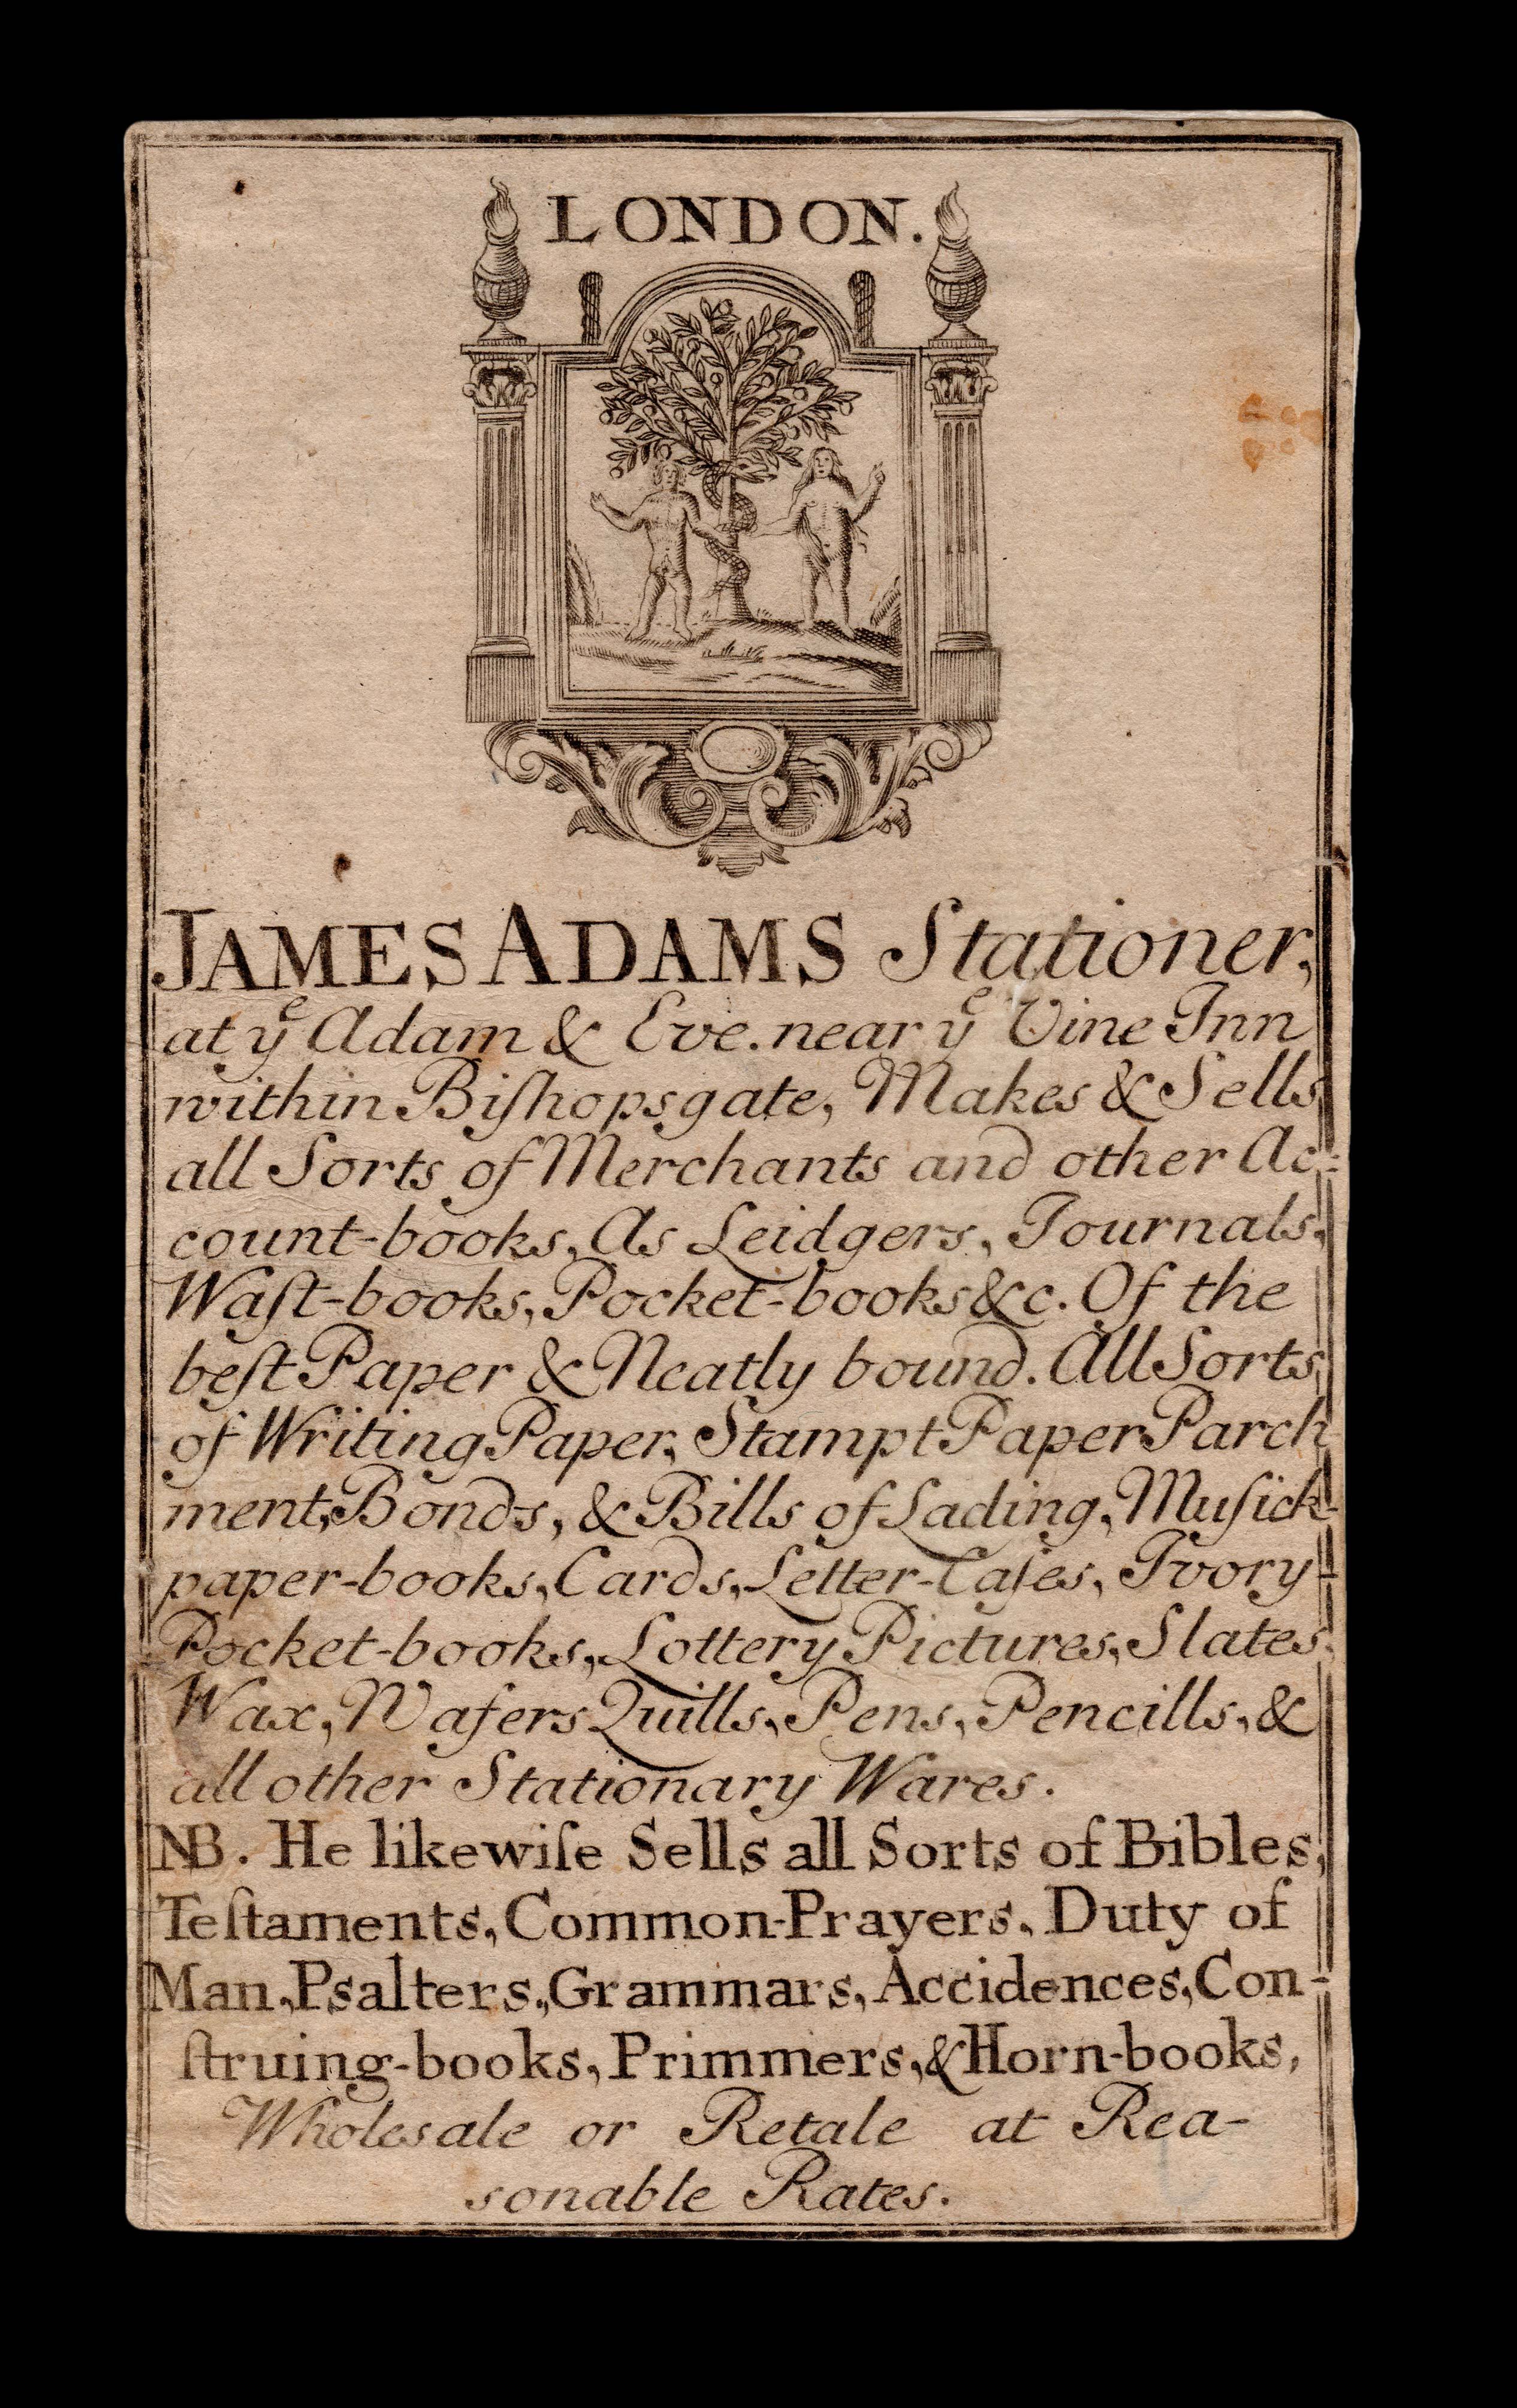 LONDON.
JAMES ADAMS Stationer,
at yᵉ Adam & Eve. near yᵉ Vine Inn
within Biſhopsgate, Makes & Sells
all Sorts of Merchants and other Ac=
count-books, As Leidgers, Journals,
Waſt-books, Pocket-books &c. Of the
beſt Paper & Neatly bound. All Sorts
of Writing Paper, Stampt Paper Parch
ment, Bonds, & Bills of Lading, Muſick-
paper-books, Cards, Letter-Caſes, Ivory-
Pocket-books, Lottery Pictures, Slates,
Wax, Wafers Quills, Pens, Pencills, &
all other Stationary Wares.
NB. He likewiſe Sells all Sorts of Bibles,
Teſtaments, Common-Prayers, Duty of
Man, Psalters, Grammars, Accidences, Con-
ſtruing-books, Primmers, & Horn-books,
Wholesale or Retale at Rea-
sonable Rates.